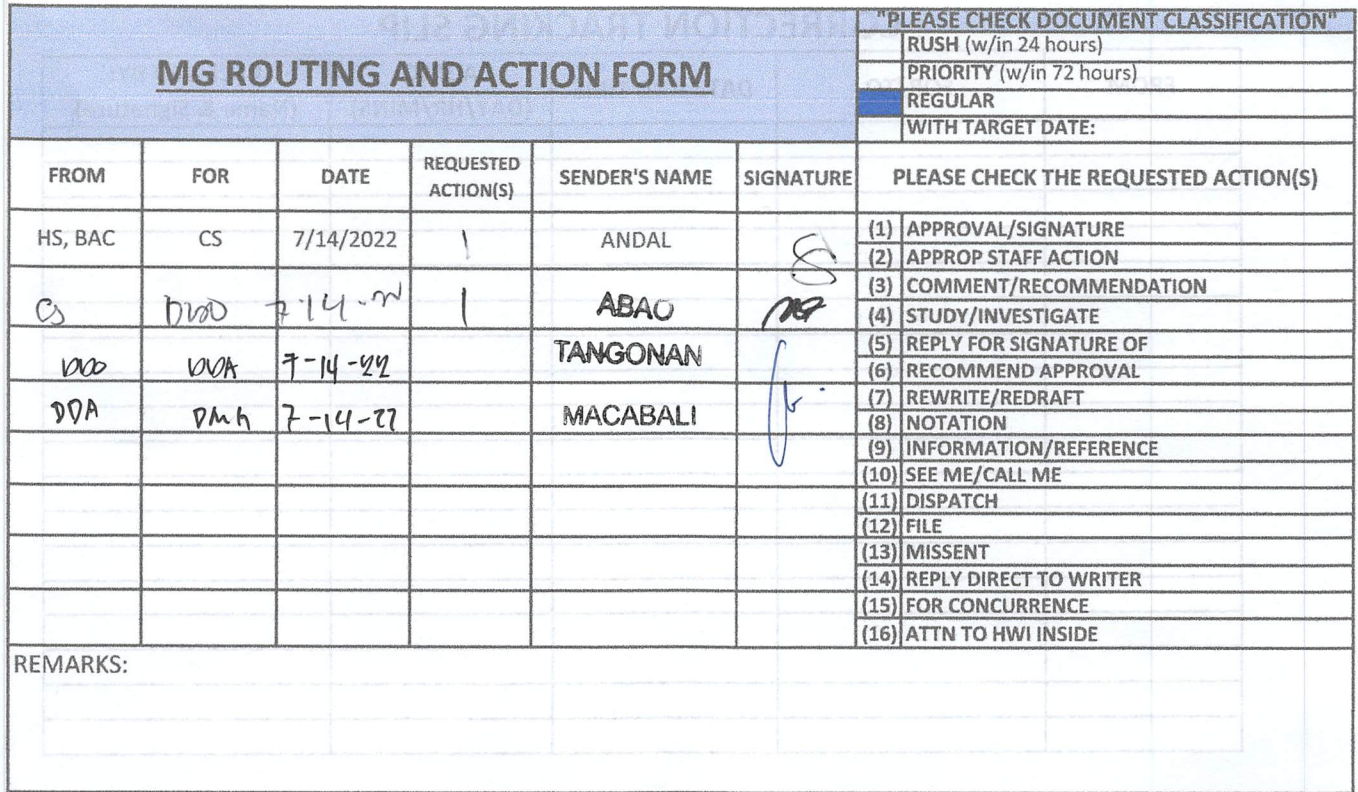 MG ROUTING AND ACTION FORM
"PLEASE CHECK DOCUMENT CLASSIFICATION"
RUSH (w/in 24 hours)
PRIORITY (w/in 72 hours)
REGULAR
WITH TARGET DATE:
FROM FOR DATE REQUESTED ACTION(S) SENDER'S NAME SIGNATURE PLEASE CHECK THE REQUESTED ACTION(S)
HS, BAC CS 7/14/2022 1 ANDAL
CS 7-14-22 1 ABAO
7-14-22 TANGONAN
DDA 7-14-22 MACABALI
(1) APPROVAL/SIGNATURE
(2) APPROP STAFF ACTION
(3) COMMENT/RECOMMENDATION
(4) STUDY/INVESTIGATE
(5) REPLY FOR SIGNATURE OF
(6) RECOMMEND APPROVAL
(7) REWRITE/REDRAFT
(8) NOTATION
(9) INFORMATION/REFERENCE
(10) SEE ME/CALL ME
(11) DISPATCH
(12) FILE
(13) MISSENT
(14) REPLY DIRECT TO WRITER
(15) FOR CONCURRENCE
(16) ATTN TO HWI INSIDE
REMARKS: